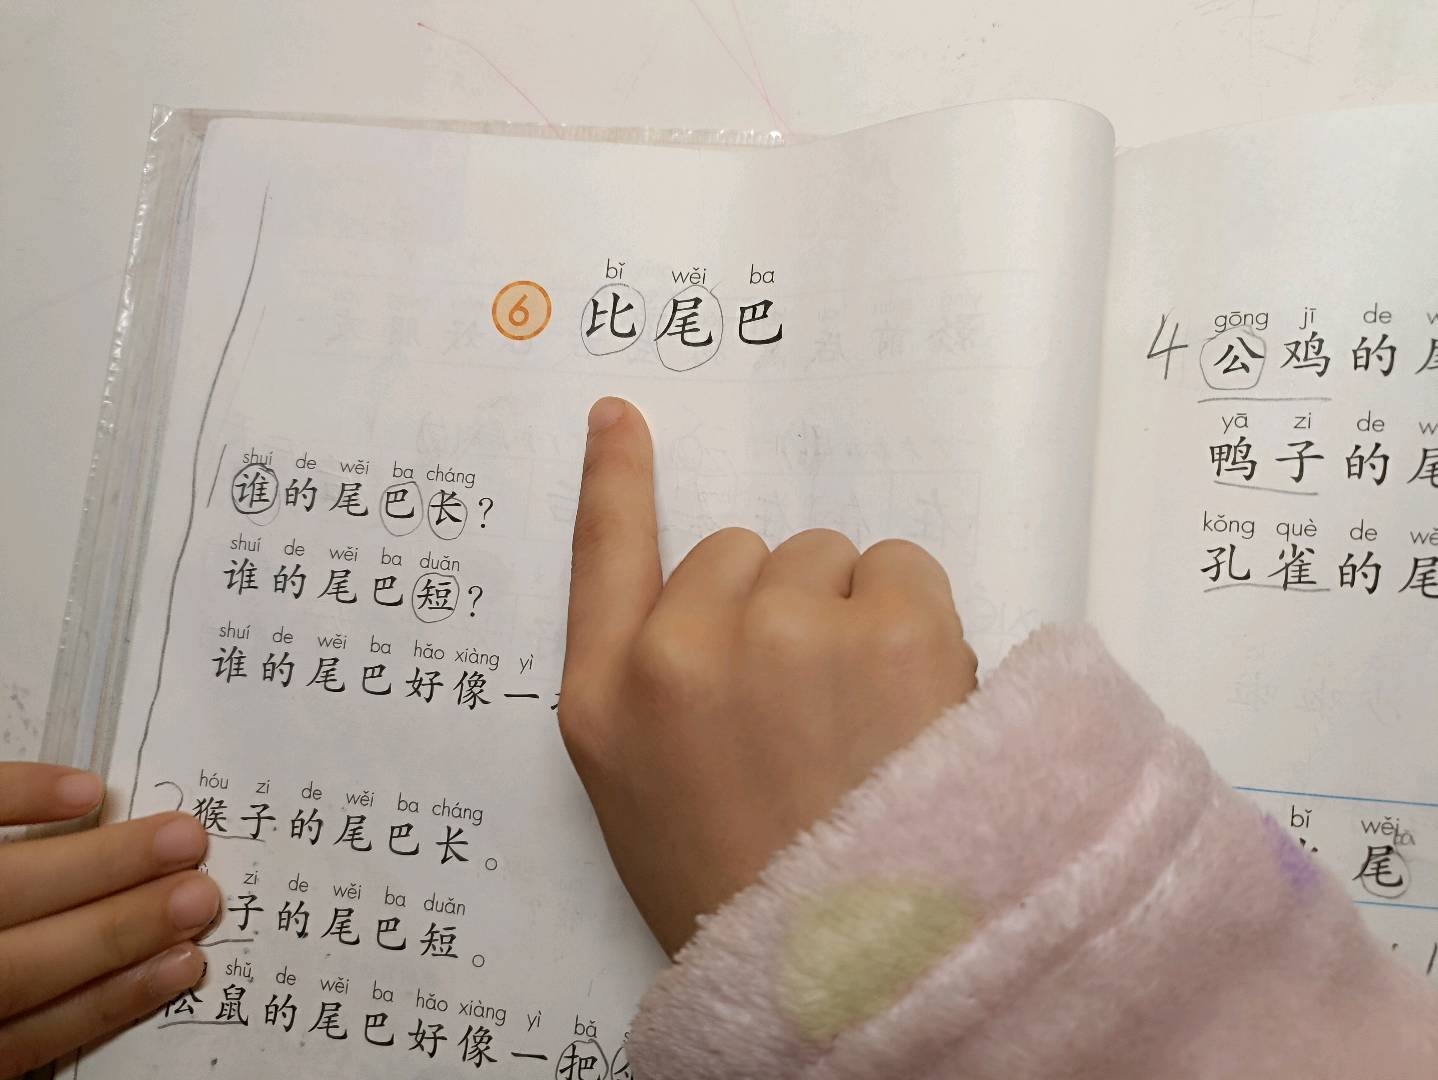 6 比尾巴
bǐ wěi ba
shuí de wěi ba cháng
谁的尾巴长？
shuí de wěi ba duǎn
谁的尾巴短？
shuí de wěi ba hǎo xiàng yì
谁的尾巴好像一
hóu zi de wěi ba cháng
猴子的尾巴长。
zi de wěi ba duǎn
子的尾巴短。
shǔ de wěi ba hǎo xiàng yì bǎ
松鼠的尾巴好像一把
gōng jī de
4 公鸡的尾
yā zi de
鸭子的尾
kǒng què de wě
孔雀的尾
bǐ wěi
尾